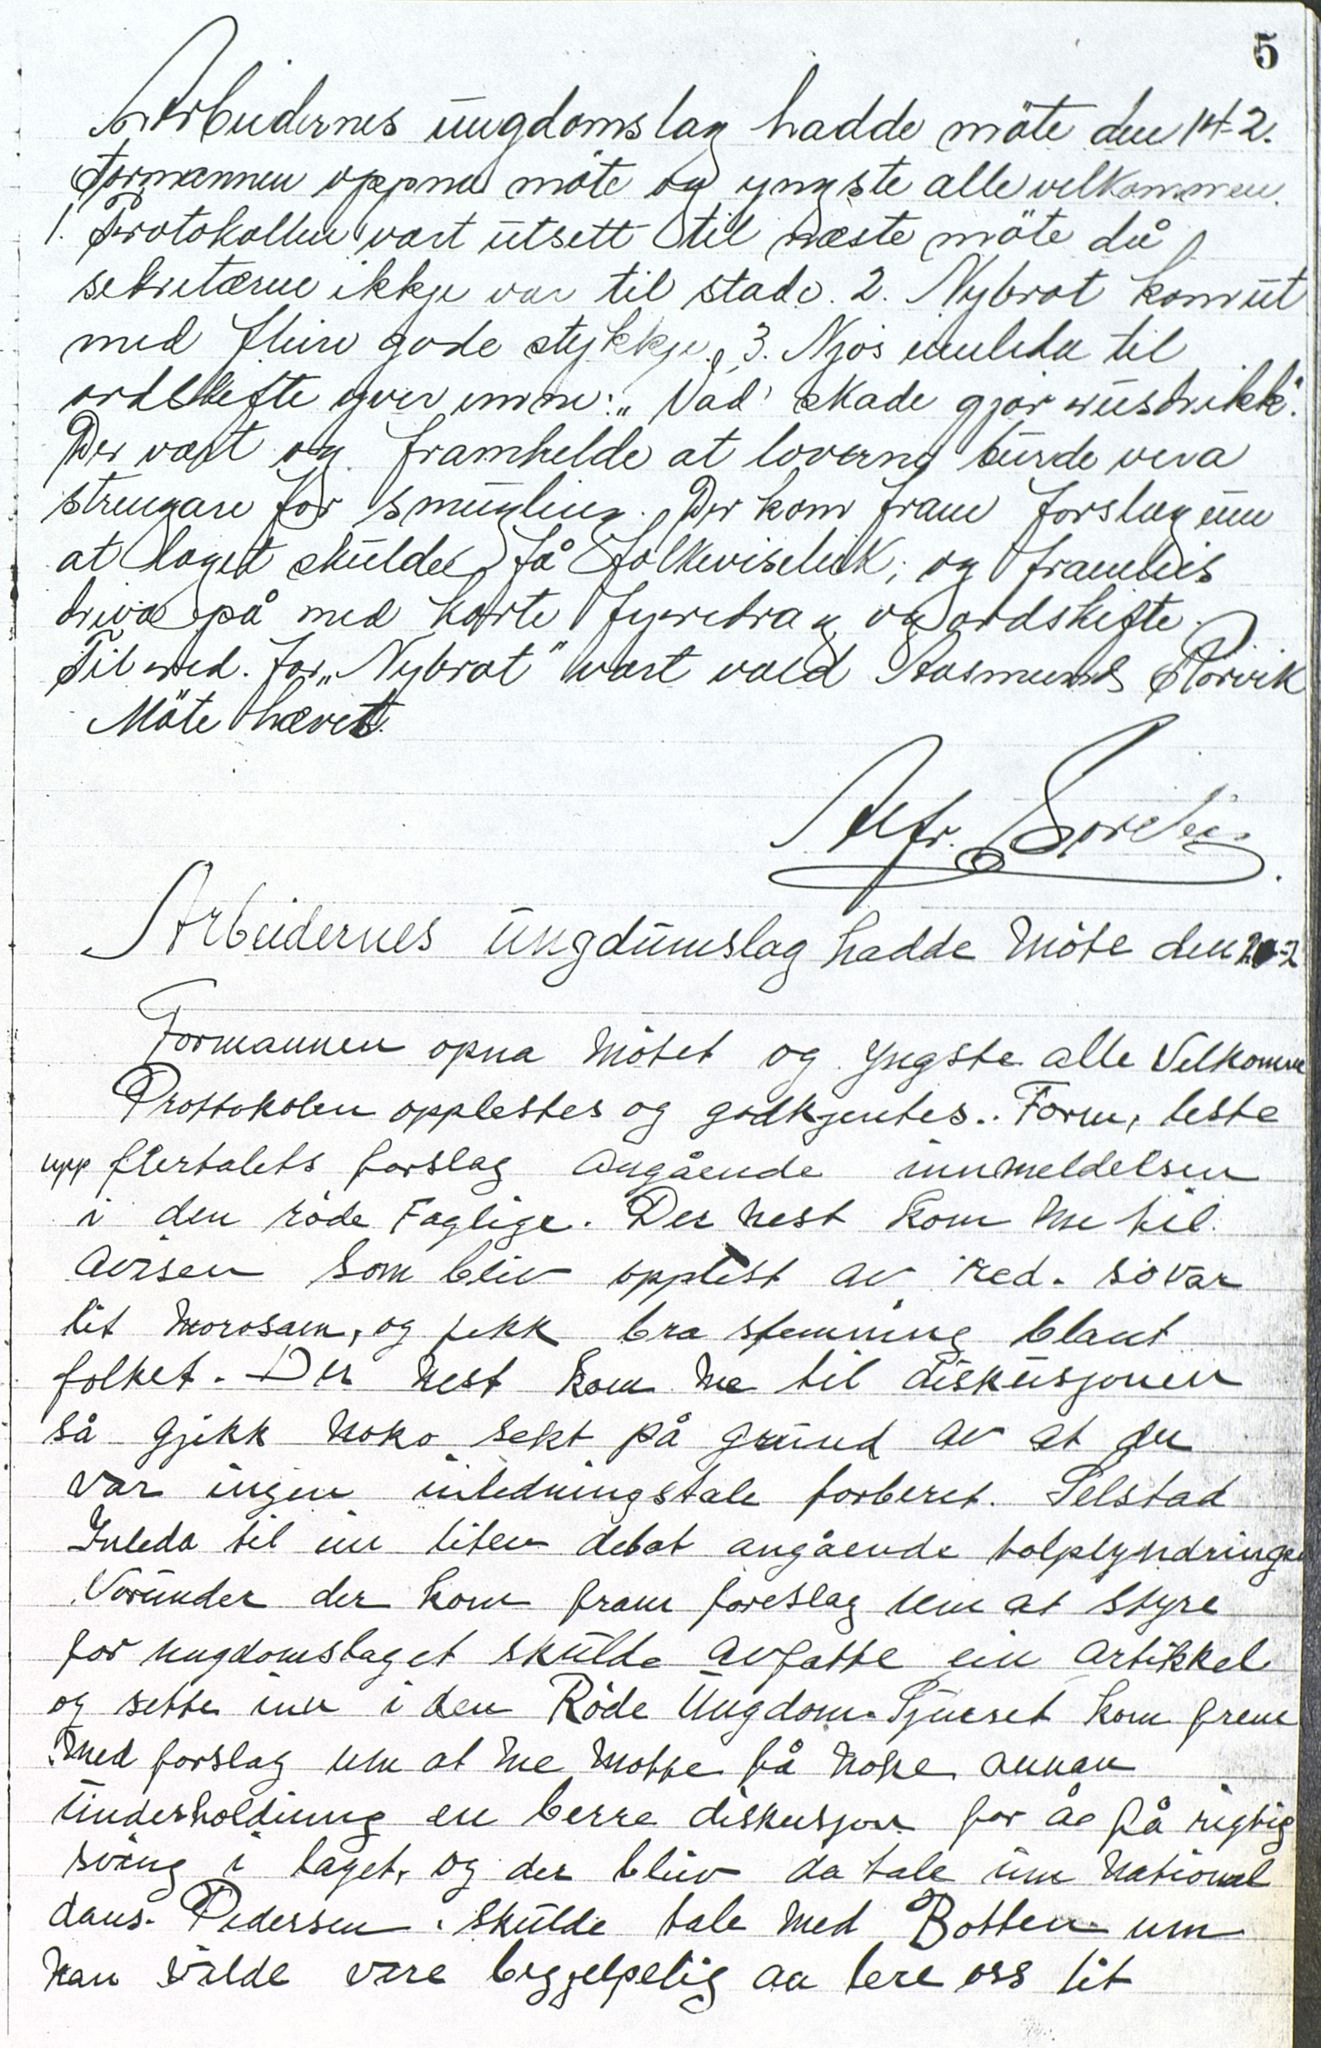 5
Arbeidernes ungdomslag hadde möte den 14-2.
Formannen oppna möte og yngste alle velkommen.
1. Protokollen vart utsett til næste möte då
sekretærne ikkje var til stade. 2. Nybrot kom ut
med fleire gode stykkje. 3. Njös innleda til
ordskifte yver emne: „Vad skade gjör rusdrikk".
Der vart og framhelde at loverne burde vera
strengare for smugling. Der kom fram forslag um
at laget skulde få folkeviseleik, og framleis
driva på med korte fyredrag og ordskifte.
Til red. for „Nybrot" vart vald Aasmund Rörvik
Möte hævet.
Alfr.
Arbeidernes Ungdumslag hadde Möte den
Formannen opna Mötet og Yngste alle Velkomne
Prottokolen opplestes og godkjentes.. Form, leste
upp flertalets forslag Angående innmeldelsen
i den röde Faglige. Der nest kom me til
Avisen som bliv opplest av red. so var
lit Morosam, og fekk bra stemning blant
folket. Der nest kom me til diskusjonen
så gjekk noko sekt på grund av at der
var ingen inledningstale forberet. Selstad
Inleda til ein liten debat angående tolplyndringen
Vorunder der kom fram foreslag um at styre
for ungdomslaget skulde avfatte ein artikkel
og sette inn i den Röde Ungdom. kom frem
med forslag um at me motte få noke annan
Underholdning en berre diskusjon for åe få rigtig
sving i laget, og der bliv da tale um national
dans. Pedersen skulde tale med Botten um
han vilde vere behjelpelig aa lere oss lit